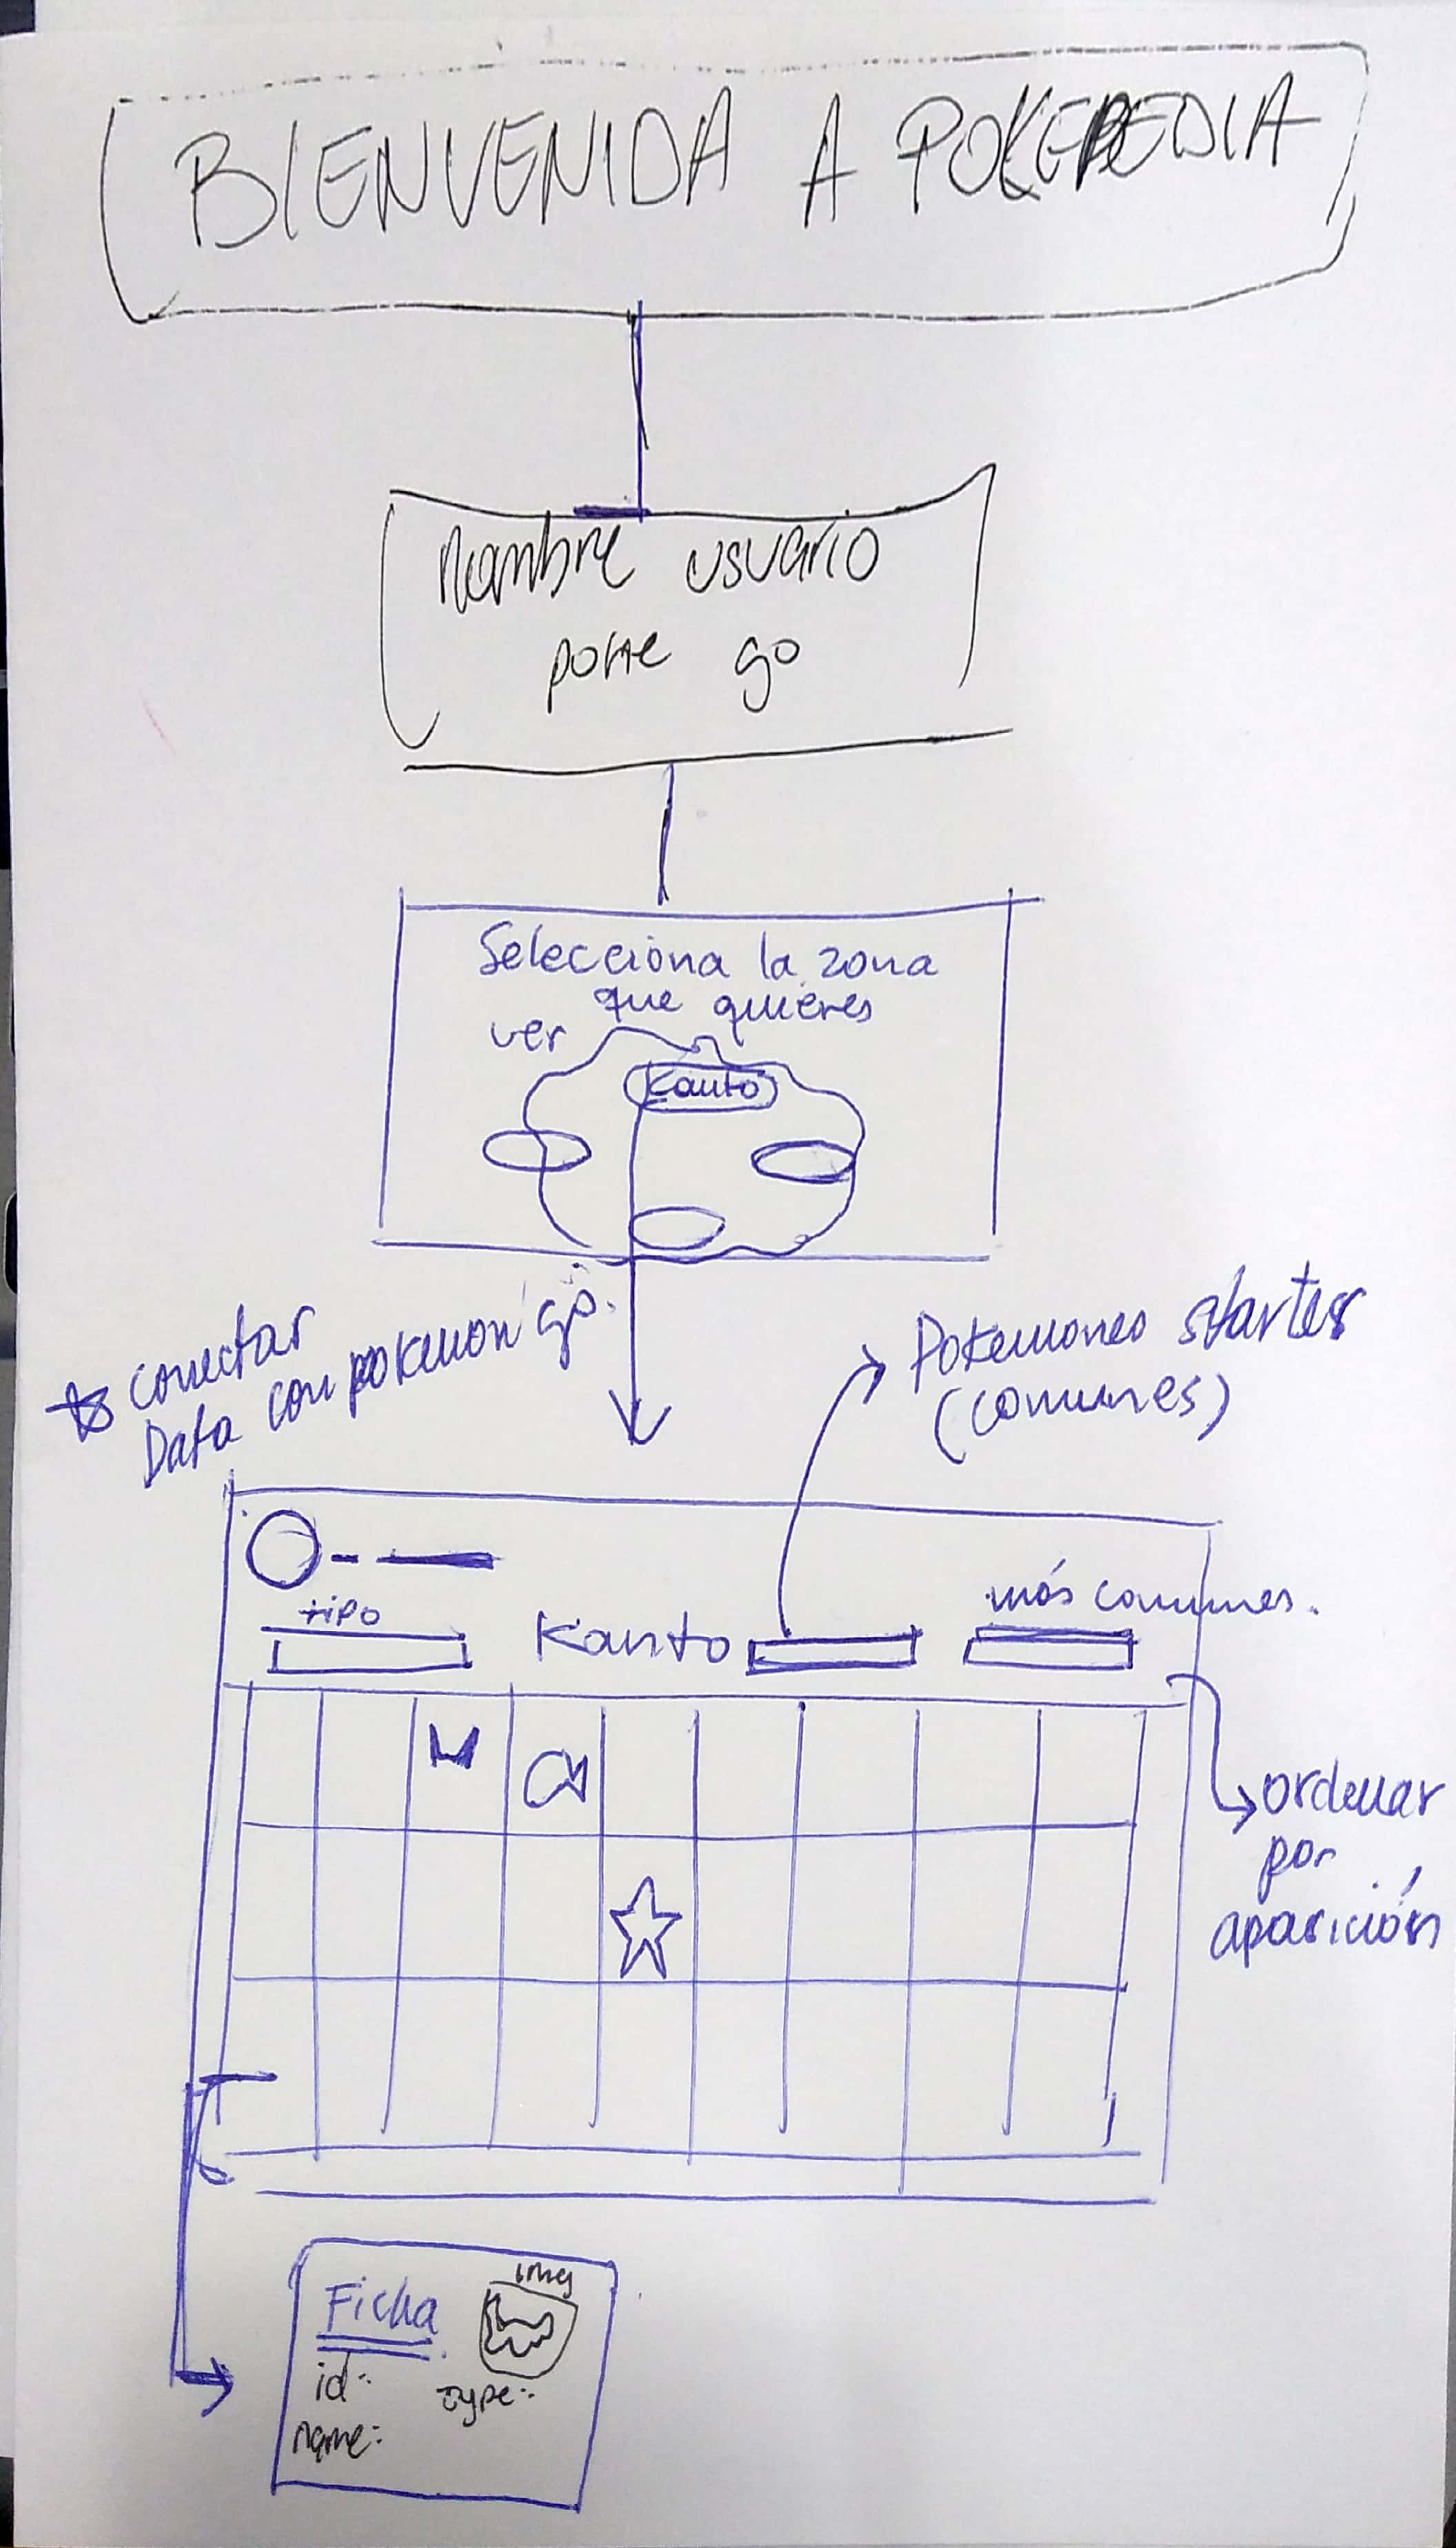 BIENVENIDA A POKEPEDIA
nombre usuario
poke go
Selecciona la zona
que quieres
ver
Kanto
conectar
Data con pokemon go.
Pokemones starter
(comunes)
tipo
Kanto
más comunes.
ordenar
por
aparición
Ficha
img
id:
type:
name: